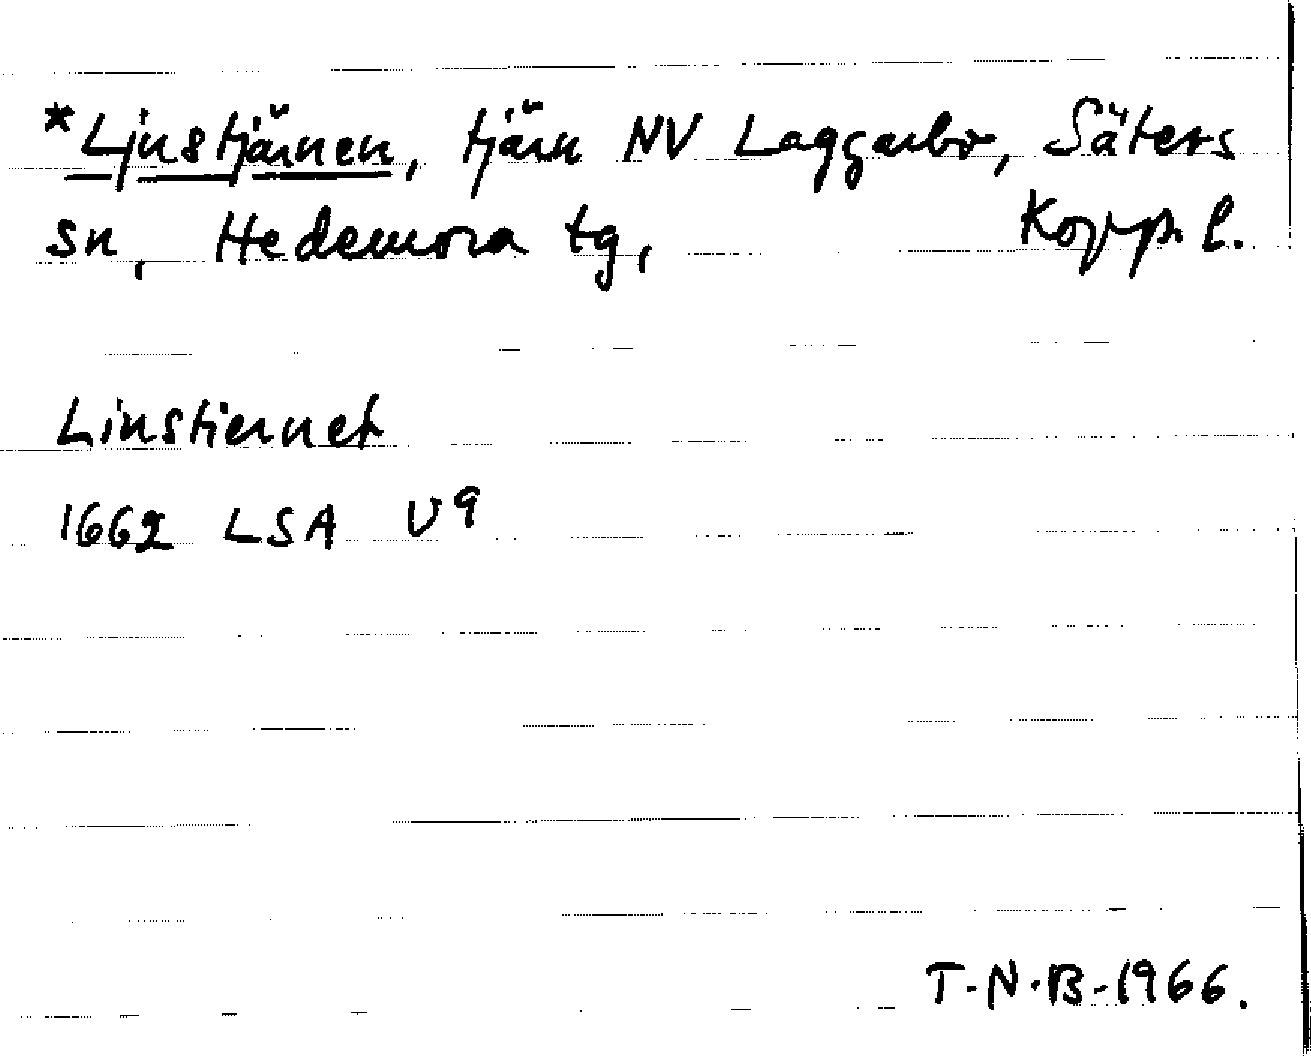 *Ljustjärnen, tjärn NV Laggarbo, Säters
sn, Hedemora tg, Kopp. l.
Linstiernet
1662 LSA U 9
T.N.B. 1966.